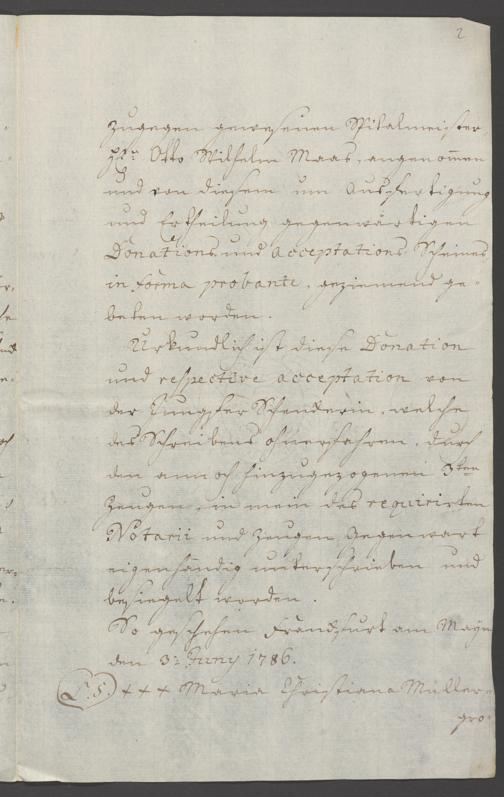 2
zugegen gewesenen Spitalmeister
Hrn Otto Wilhelm Maas, angenommen
und von diesem um Ausfertigung
und Ertheilung gegenwärtigen
Donations und acceptations Scheines
in forma probanti, geziemend ge-
beten worden.
Urkundlich ist diese Donation
und respective acceptation von
der Jungfer Schenckerin, welche
des Schreibens ohnerfahren, durch
den annoch hinzugezogenen 3ten
Zeugen, in mein des requirirten
Notarii und Zeugen Gegenwart
eigenhändig unterschrieben und
besiegelt worden.
So geschehen Franckfurt am Mayn
den 3n Juny 1786.
L. S. +++ Maria Christiana Müller